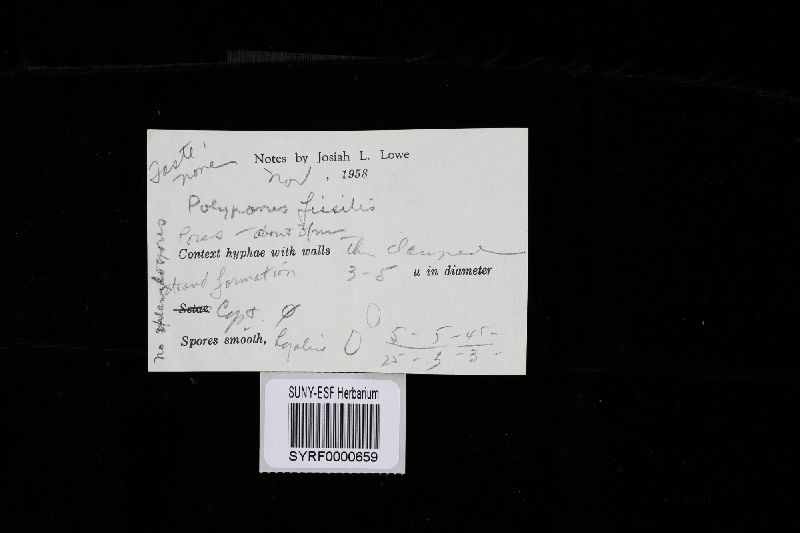 Taste:
none
Notes by Josiah L. Lowe
Nov , 1958
Polyporus fissilis
Pores - about 3/mm
Context hyphae with walls thin clamped
strand formation 3-5 u in diameter
Setae Cyst. Ø
Spores smooth, hyalin 5 - 5 - 45 -
25 - 3 - 3 -
no chlamydospores
SUNY-ESF Herbarium
SYRF0000659